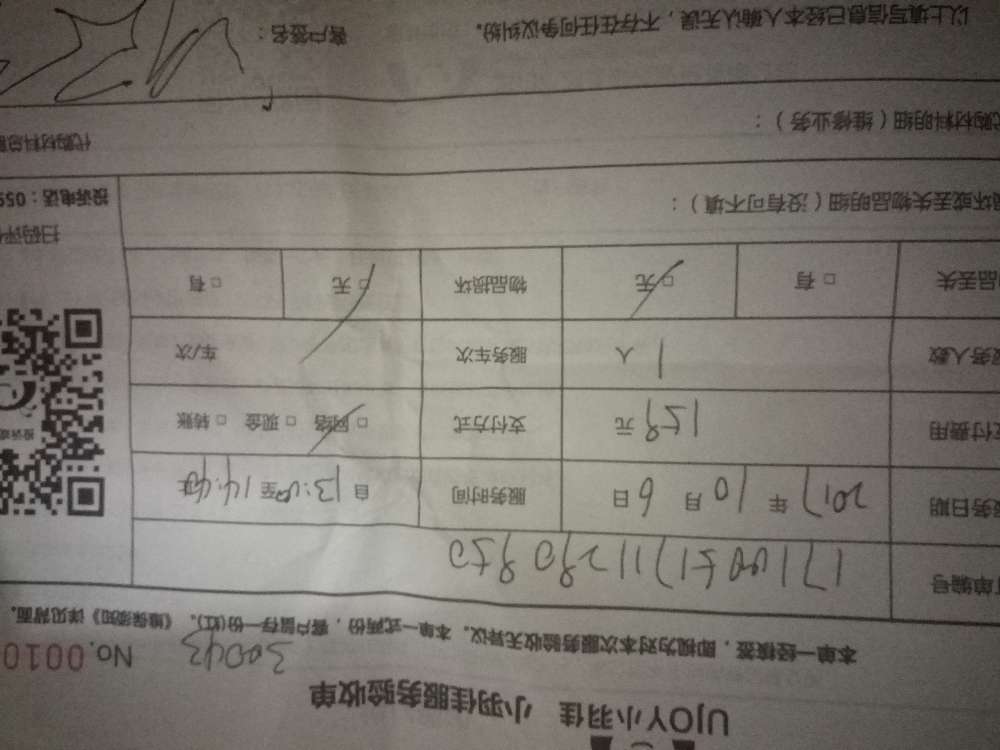 UJOY小羽佳 小羽佳服务验收单
30043 No.0010
本单一经核签，即视为对本次服务验收无异议。本单一式两份，客户留存一份(红)。《维保须知》详见背面。
单编号
务日期 2017 年 10 月 6 日 服务时间 自 13:00 至 14:40
付费用 159 元 支付方式 □ 网络 □ 现金 □ 转账
务人数 1 人 服务车次 车/次
品丢失 □ 有 □ 无 物品损坏 □ 无 □ 有
扫码评
坏或丢失物品明细（没有可不填）： 投诉电话：059
购材料明细（维修业务）： 代购材料总
以上填写信息已经本人确认无误，不存在任何争议纠纷。 客户签名：